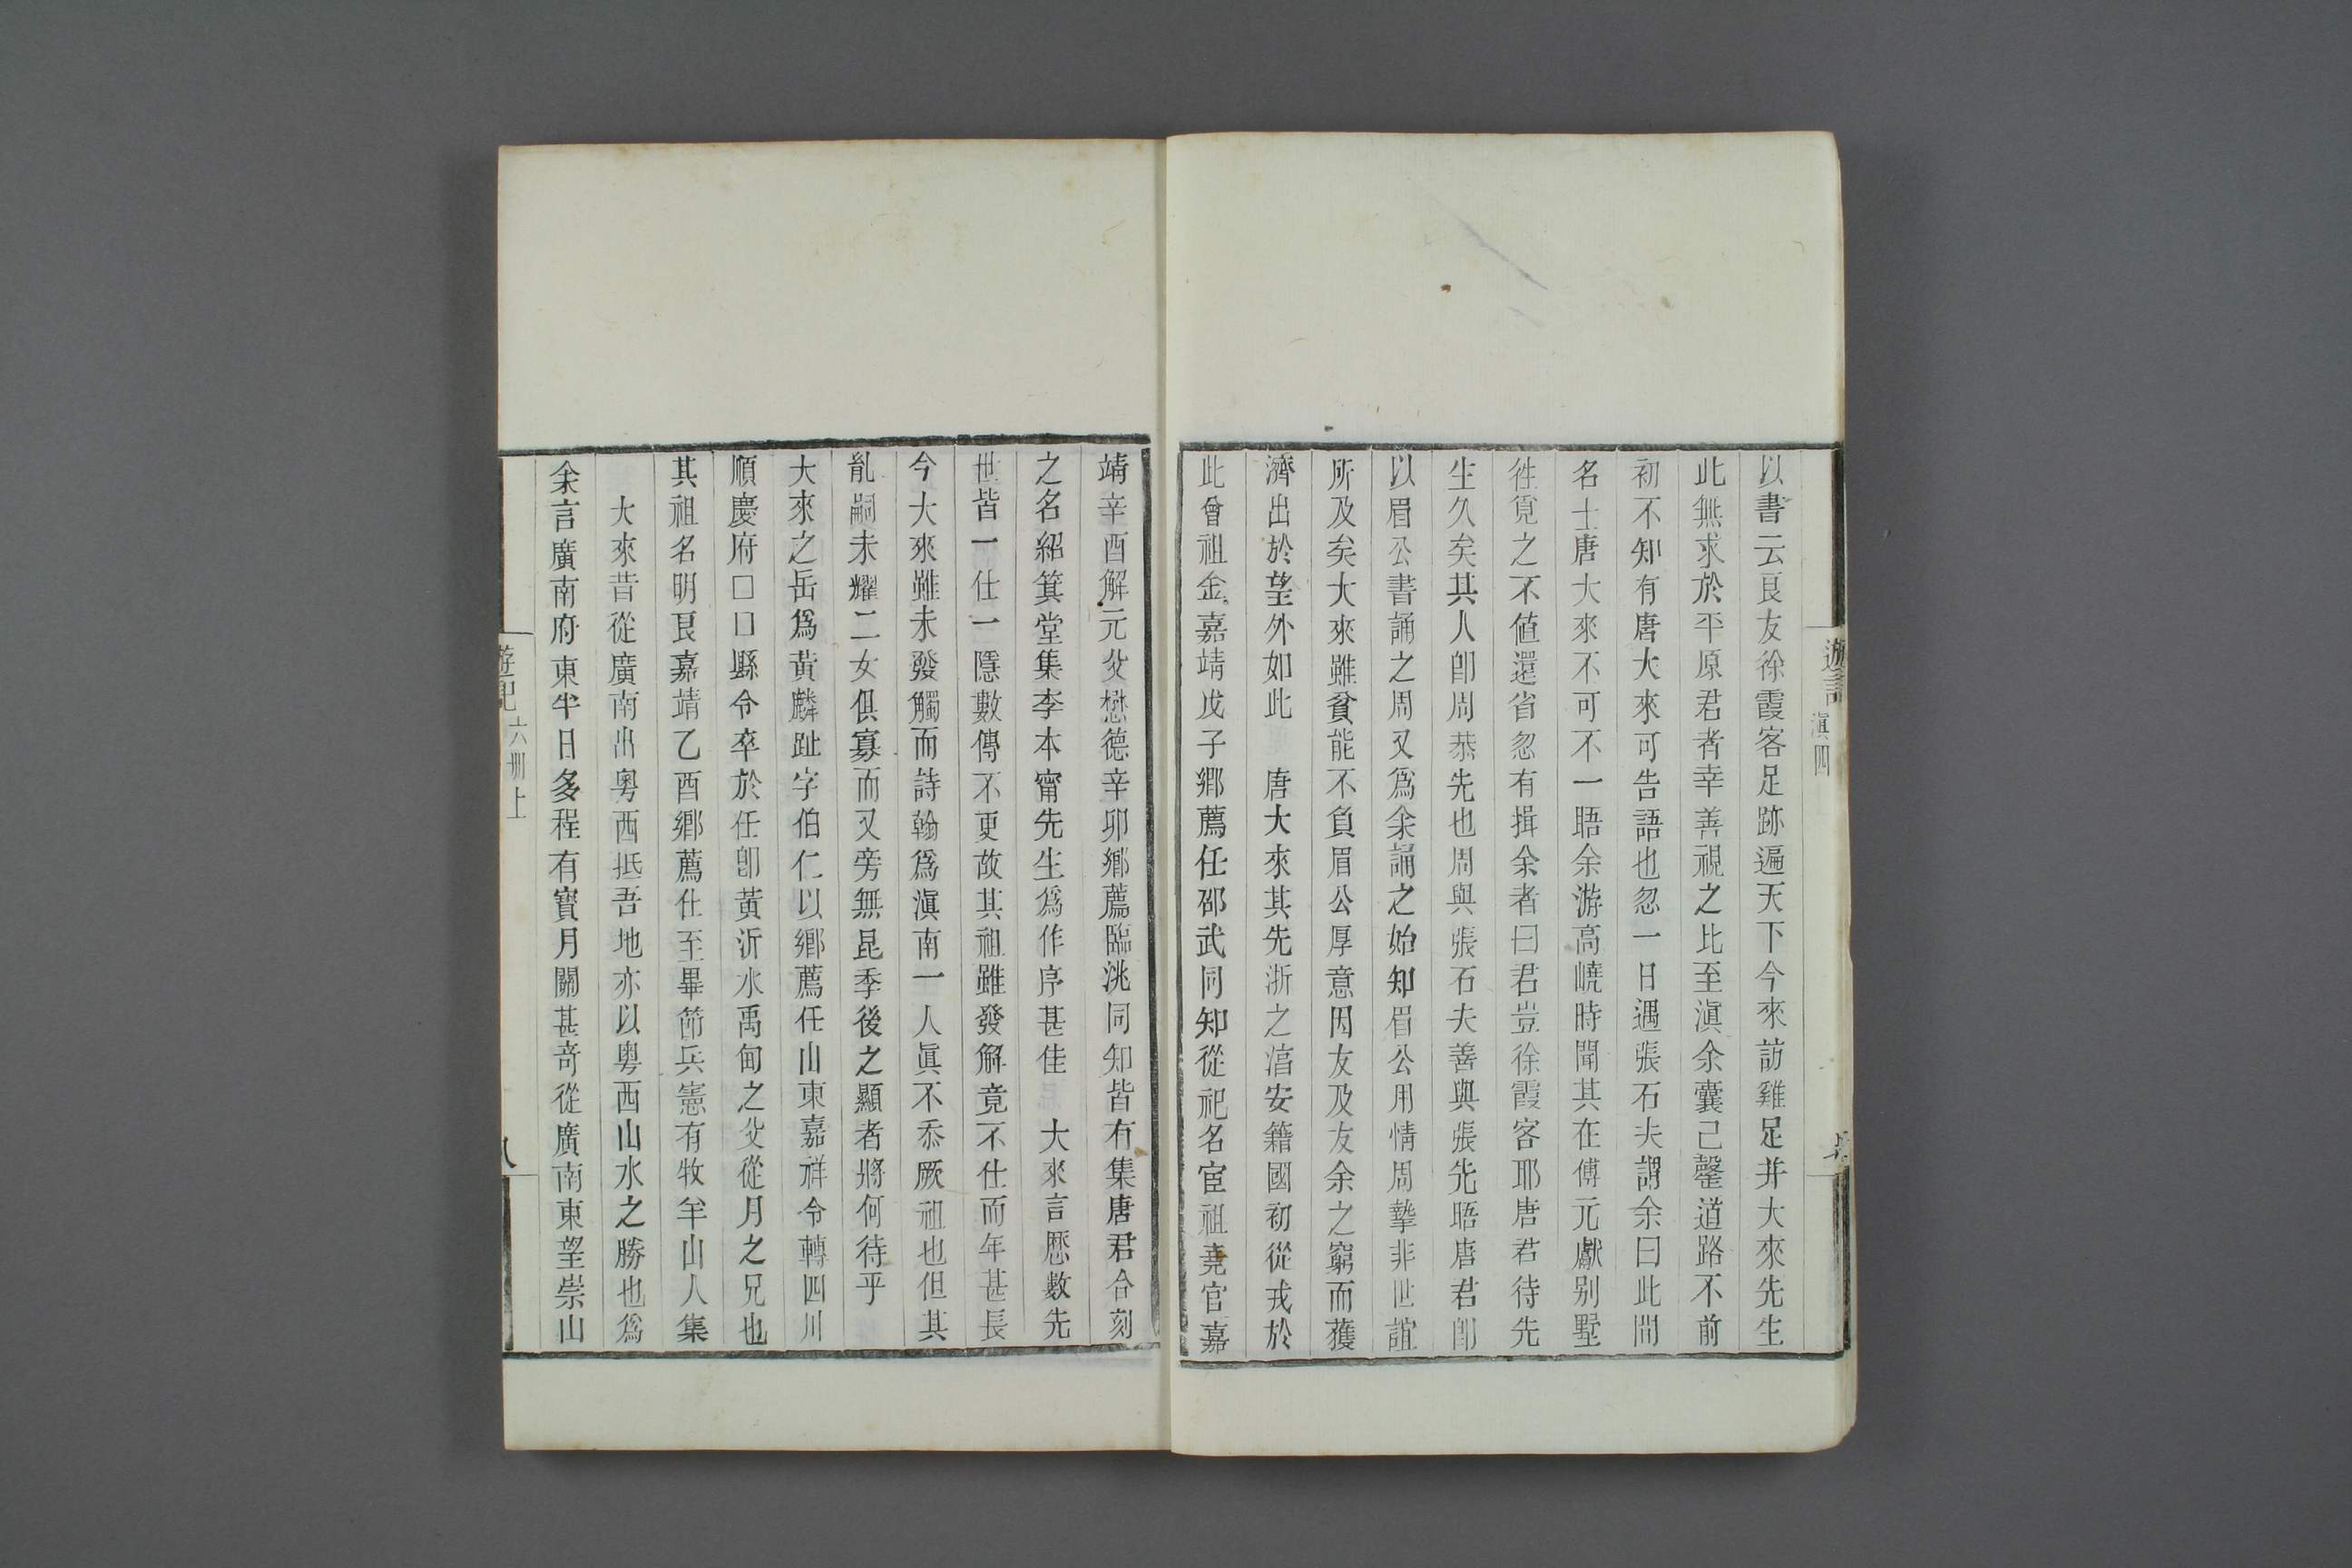 遊記
滇四
以書云良友徐霞客足跡遍天下今來訪雞足并大來先生
此無求於平原君者幸善視之比至滇余囊己罄道路不前
初不知有唐大來可告語也忽一日遇張石夫謂余曰此間
名士唐大來不可不一晤余游高嶢時聞其在傅元獻别墅
徃覓之不値還省忽有揖余者曰君豈徐霞客耶唐君待先
生久矣其人卽周恭先也周與張石夫善與張先晤唐君卽
以眉公書誦之周又爲余誦之始知眉公用情周摯非世誼
所及矣大來雖貧能不負眉公厚意因友及友余之窮而獲
濟出於望外如此　唐大來其先浙之湻安籍國初從戎於
此曾祖金嘉靖戊子鄉薦任邵武同知從祀名宦祖堯官嘉
靖辛酉解元父懋德辛卯鄉薦臨洮同知皆有集唐君合刻
之名紹箕堂集李本甯先生爲作序甚佳　大來言歷數先
世皆一仕一隱數傳不更故其祖雖發解竟不仕而年甚長
今大來雖未發觸而詩翰爲滇南一人眞不忝厥祖也但其
胤嗣未耀二女俱寡而又旁無昆季後之顯者將何待乎
大來之岳爲黃麟趾字伯仁以鄉薦任山東嘉祥令轉四川
順慶府□□縣令卒於任卽黃沂水禹甸之父從月之兄也
其祖名明良嘉靖乙酉鄉薦仕至畢節兵憲有牧羊山人集
大來昔從廣南出粤西抵吾地亦以粤西山水之勝也爲
余言廣南府東半日多程有寳月關甚奇從廣南東望崇山
遊記
六册上
八